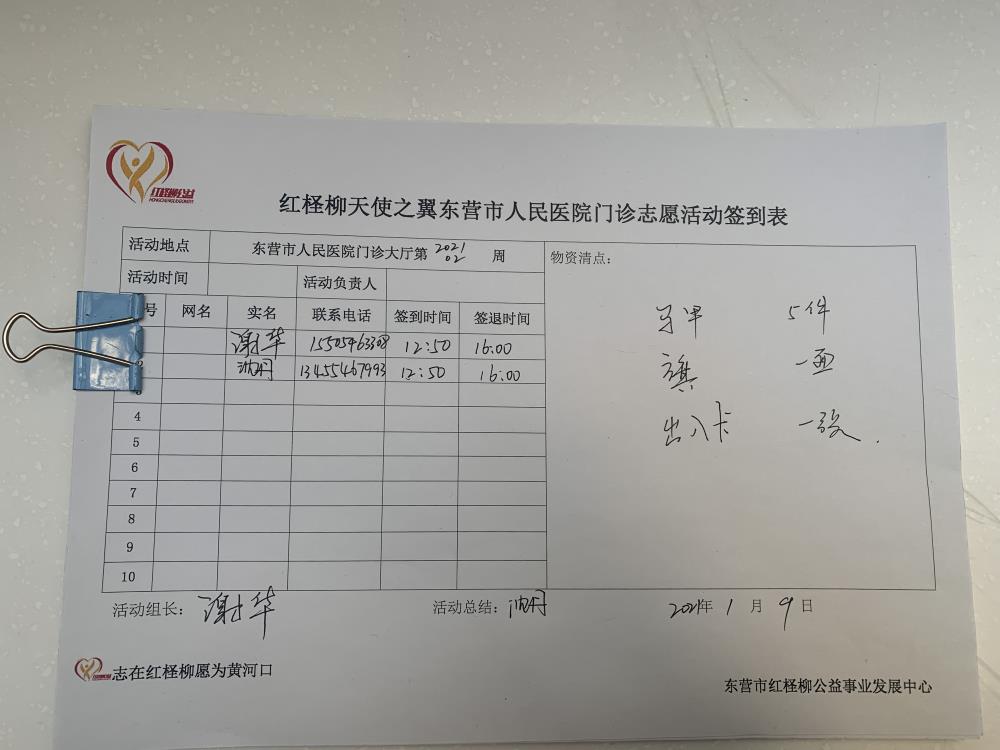 红柽柳公益
红柽柳天使之翼东营市人民医院门诊志愿活动签到表
活动地点 东营市人民医院门诊大厅第 2021 02 周
活动时间 活动负责人
号 网名 实名 联系电话 签到时间 签退时间
谢华 15505463308 12:50 16:00
沈丹 13455467993 12:50 16:00
3
4
5
6
7
8
9
10
物资清点:
马甲 5件
旗 一面
出入卡 一张.
活动组长: 谢华 活动总结: 沈丹 2021年 1 月 9 日
志在红柽柳愿为黄河口
东营市红柽柳公益事业发展中心